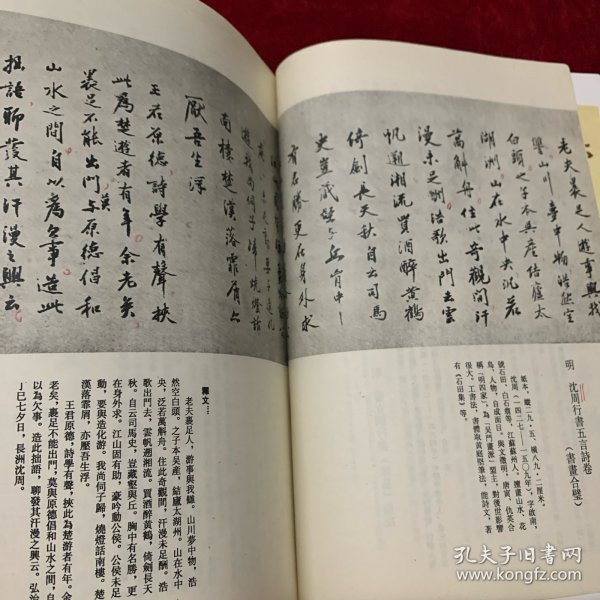 老夫裹足人遊事與我
讐山川夢中物浩然空
白頭之子本吳產結廬太
湖洲山在水中央泛若
萬斛舟住此奇觀間汗
漫未足酬浩歌出門去雲
帆遡湘流買酒醉黃鶴
倚劍長天秋自云司馬
史豈藏壑與丘胸中
有名勝更在身外求
遊我尚伺子歸燒燈話
南樓楚漢落霏屑亦
厭吾生浮
王君原德詩學有聲挾
此為楚遊者有年余老矣
裹足不能出門與原德倡和
莫
山水之間自以為欠事造此
拙語聊發其汗漫之興云
明　沈周行書五言詩卷
（書畫合璧）
紙本，縱二九·五、橫八九·二厘米。
沈周（一四二七——一五〇九年）字啟南，
號石田、白石翁等，江蘇蘇州人，擅畫山水、花
鳥、人物，自成面目。與文徵明、唐寅、仇英合
稱「明四家」，為「吳門畫派」盟主，對後世影響
很大。工書法，書體取黃庭堅筆法，能詩文，著
有《石田集》等。
釋文：
老夫裹足人，游事與我讎。山川夢中物，浩
然空白頭。之子本吳產，結廬太湖州。山在水中
央，泛若萬斛舟。住此奇觀間，汗漫未足酬。浩
歌出門去，雲帆遡湘流。買酒醉黃鶴，倚劍長天
秋。自云司馬史，豈藏壑與丘。胸中有名勝，更
在身外求。江山固有助，豪吟動公侯。公侯未足
動，要與造化游。我尚伺子歸，燒燈話南樓。楚
漢落霏屑，亦壓吾生浮。
王君原德，詩學有聲，挾此為楚游者有年。余
老矣，裹足不能出門，莫與原德倡和山水之間，自
以為欠事。造此拙語，聊發其汗漫之興云。弘治
丁巳七夕日，長洲沈周。
孔夫子旧书网
www.kongfz.com